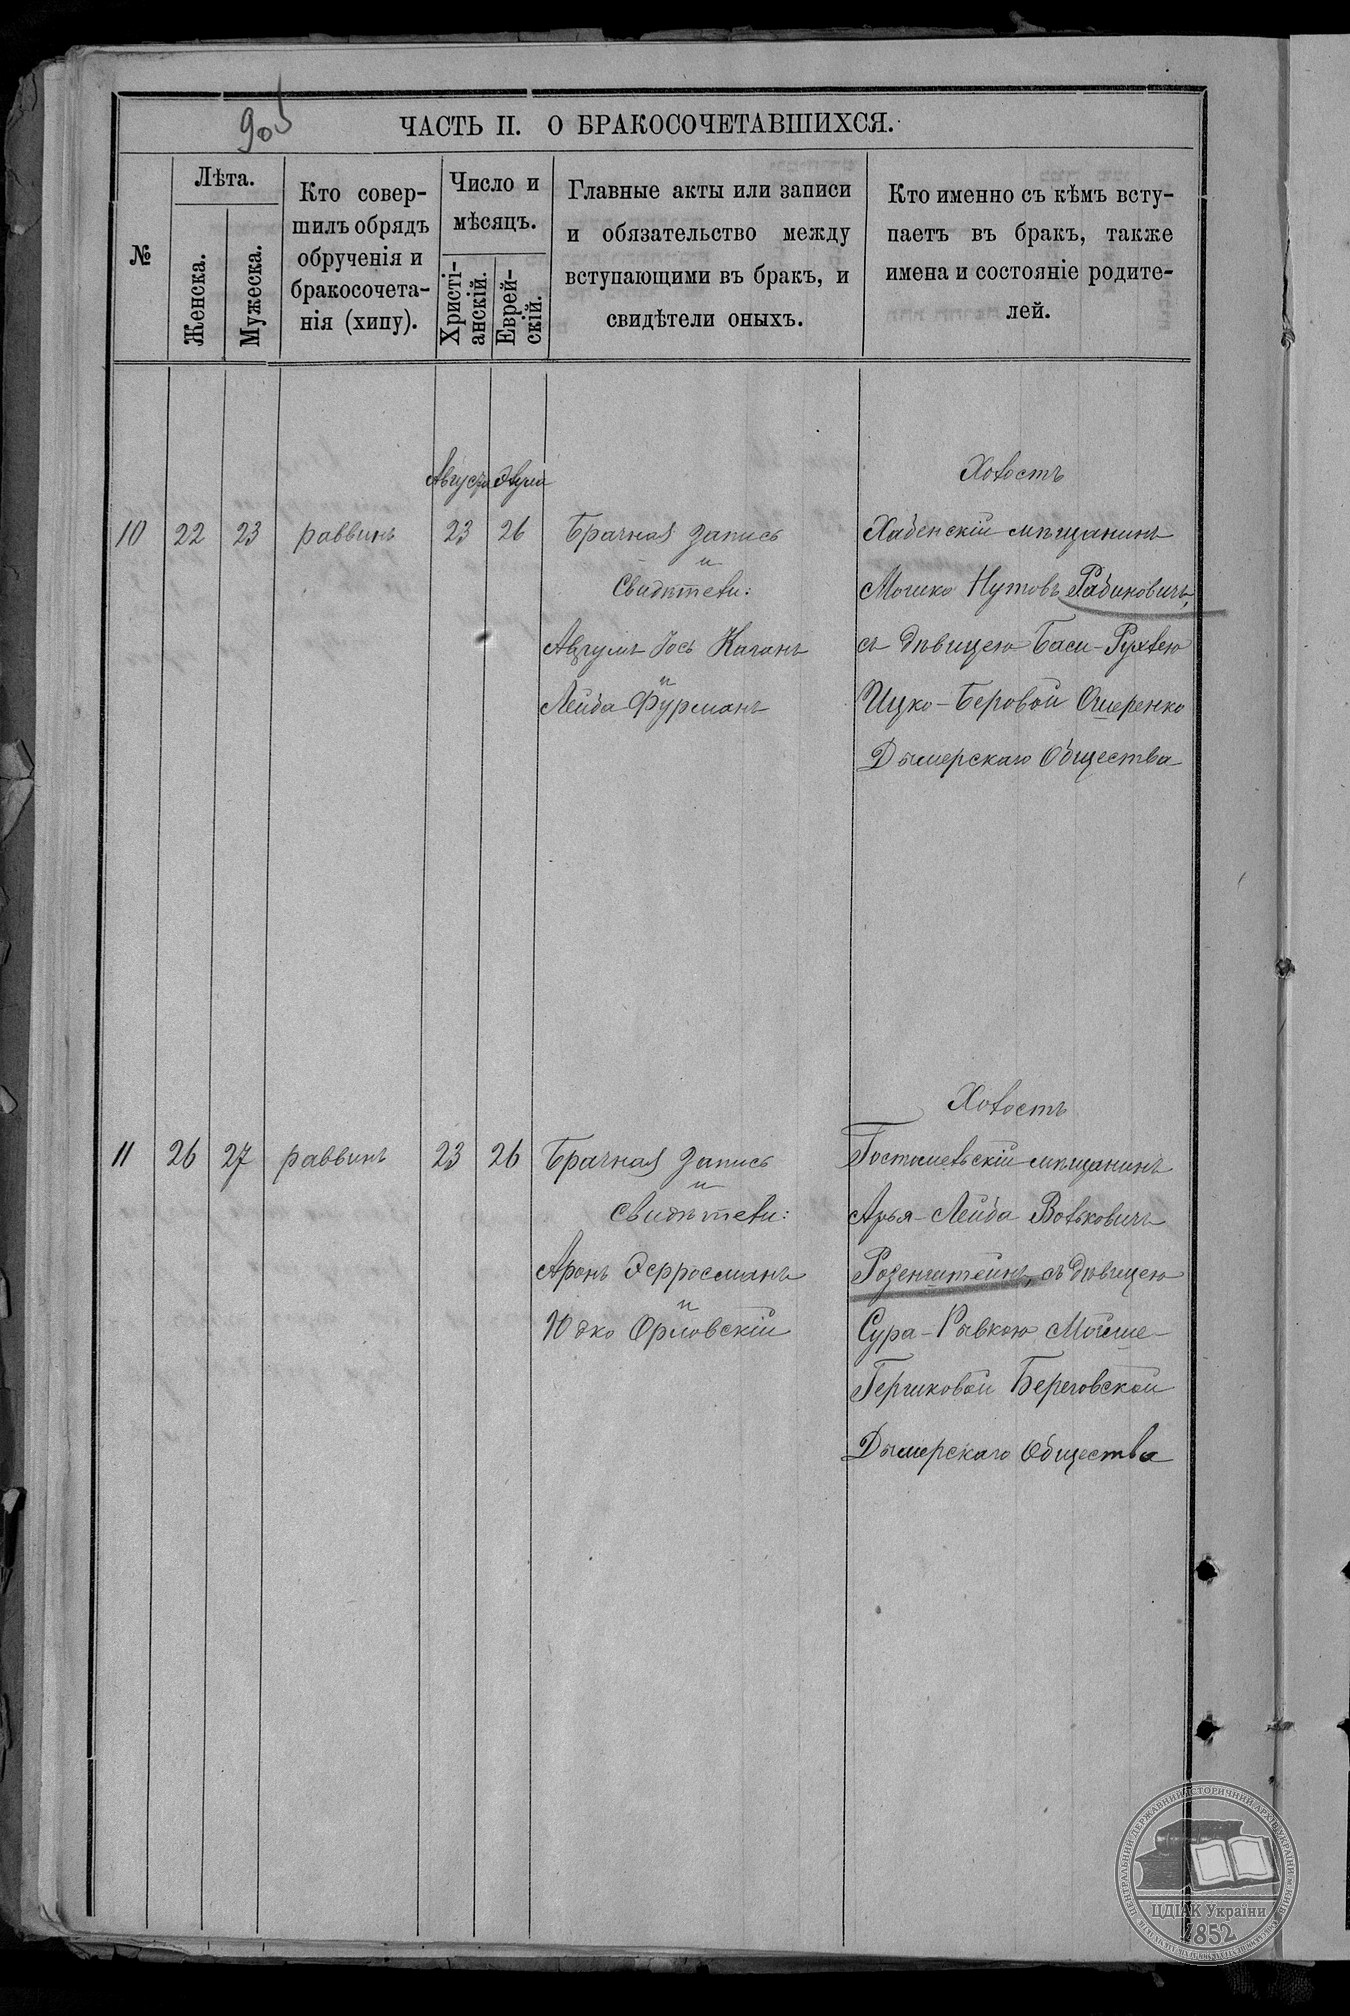 905
ЧАСТЬ II. О БРАКОСОЧЕТАВШИХСЯ.
№
Лѣта.
Женска.
Мужеска.
Кто совер-
шилъ обрядъ
обрученія и
бракосочета-
нія (хипу).
Число и
мѣсяцъ.
Христі-
анскій.
Еврей-
скій.
Главные акты или записи
и обязательство между
вступающими въ бракъ, и
свидѣтели оныхъ.
Кто именно съ кѣмъ всту-
паетъ въ бракъ, также
имена и состояніе родите-
лей.
Августа Элула
Холостъ
10 22 23 раввинъ 23 26 Брачная запись
и
Свидѣтели:
Авгумъ Іось Каганъ
и
Лейба Фурманъ
Хабенскій мѣщанинъ
Мошко Нутовъ Рабиновичъ,
съ дѣвицею Баси-Рухлею
Ицко-Беровой Ошеренко
Дымерскаго Общества
Холостъ
11 26 27 раввинъ 23 26 Брачная запись
и
свидѣтели:
Аронъ Эсфросманъ
и
Юдко Орловскій
Гостомельскій мѣщанинъ
Арья-Лейба Вольковичъ
Розенштейнъ, съ дѣвицею
Сура-Рывкою Мойше-
Гершковой Береговской
Дымерскаго Общества
ЦДІАК України
1852